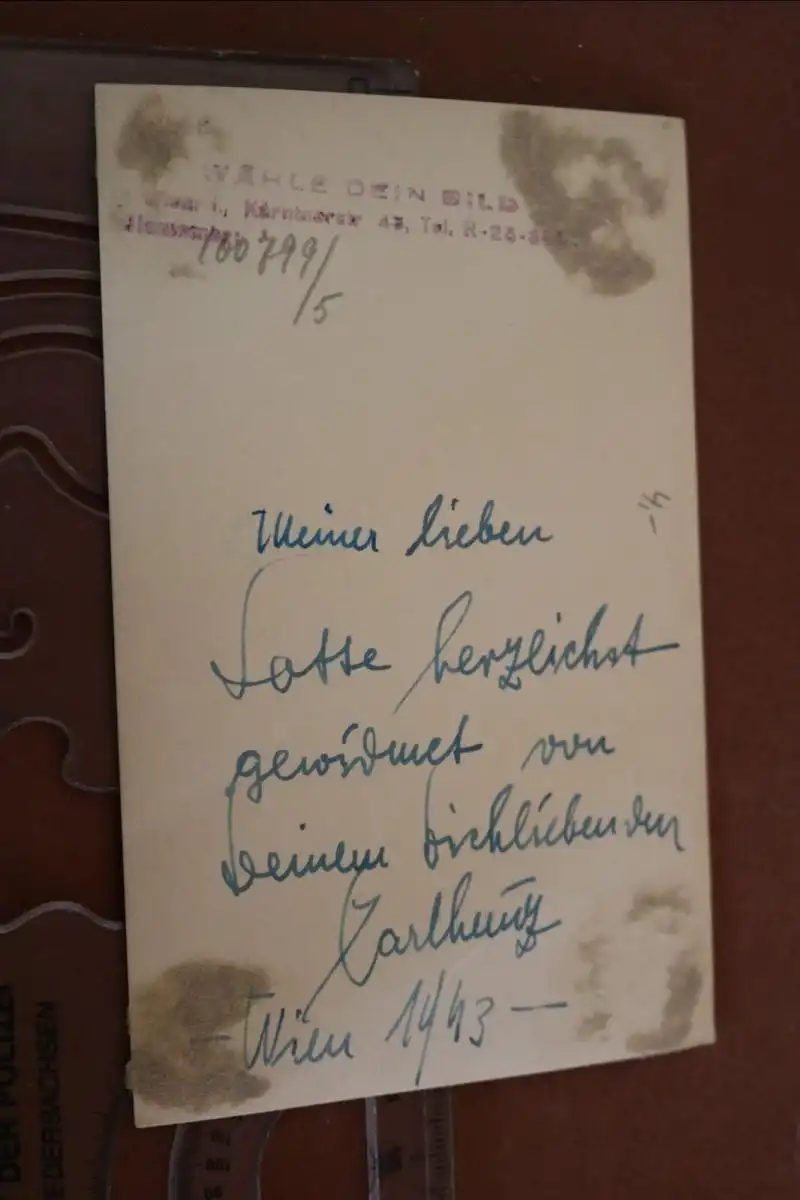 WÄHLE DEIN BILD
Wien I., Kärntnerstr 43, Tel. R-26-
100799/5
4,-
Meiner lieben
Lotte herzlichst
gewidmet von
Deinem Dichliebenden
Karlheinz
Wien 1943 —
DER POLIZEI
DERSACHSEN